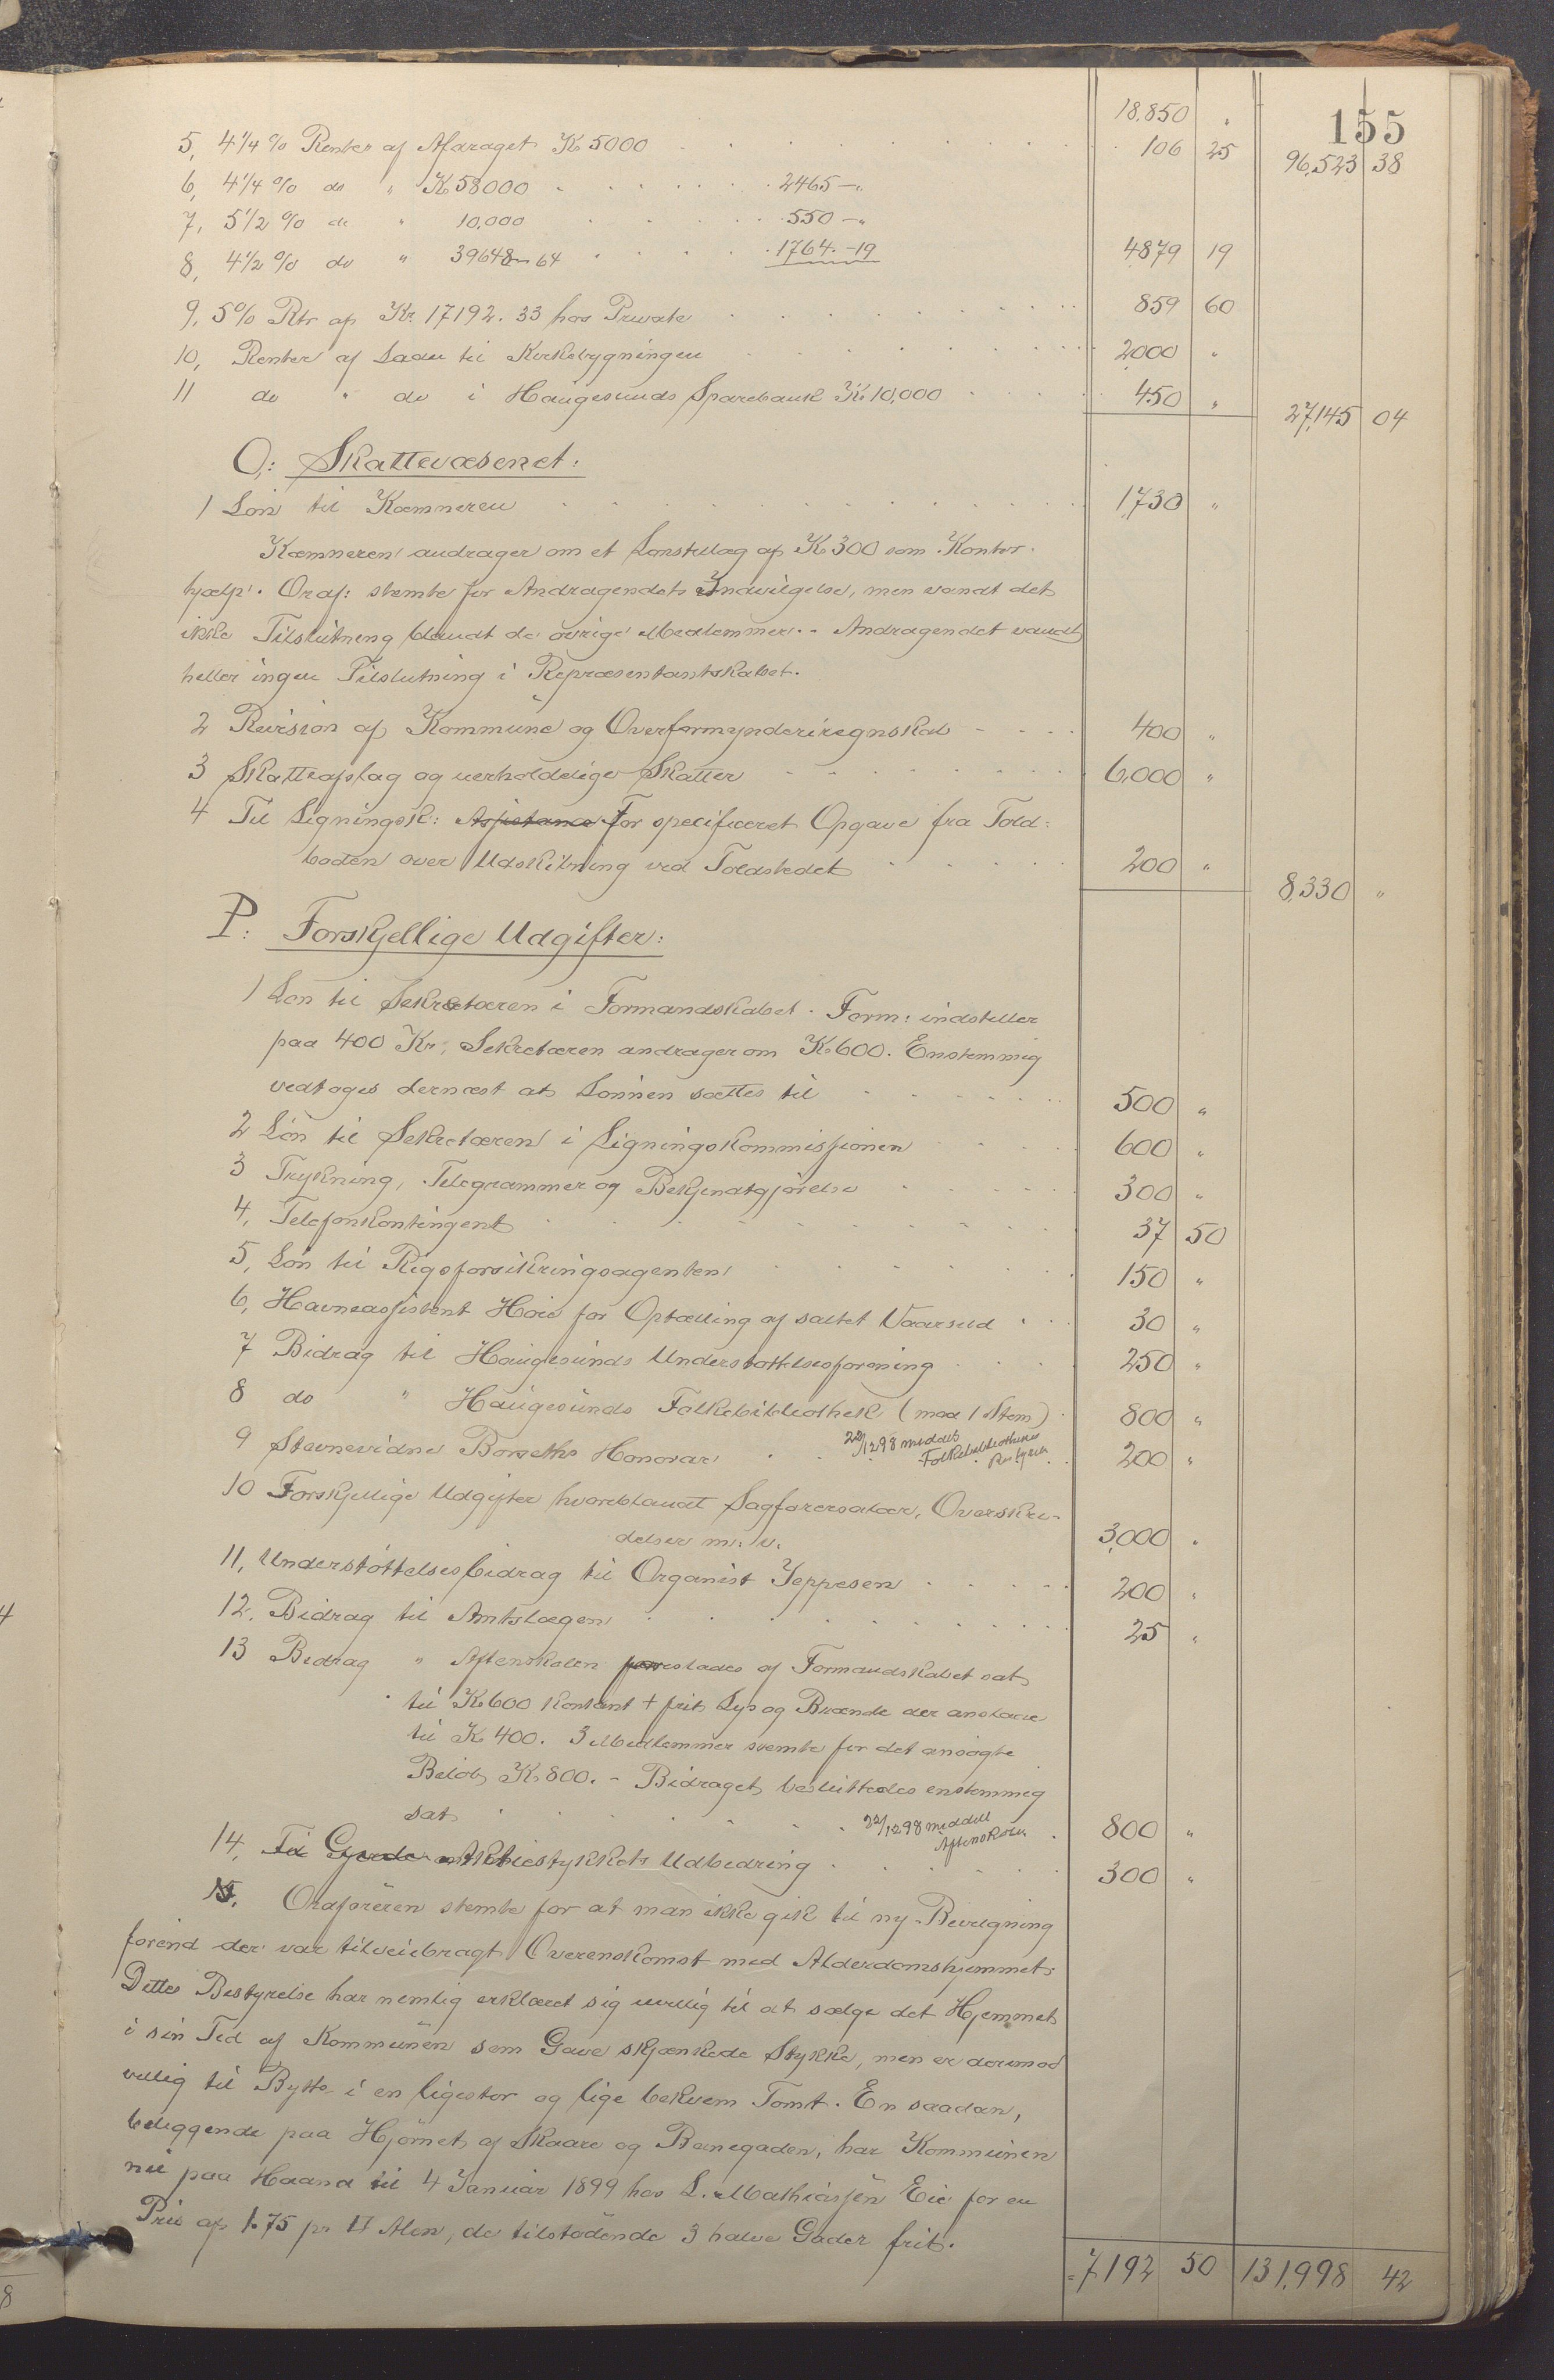 155
18,850 "
96,523 38
5, 4 1/4 % Renter af Afdraget Kr 5000 106 25
6, 4 1/4 % do " Kr 58000 2465 — "
7, 5 1/2 % do " 10,000 550 — "
8, 4 1/2 % do " 39648 — 64 1764. — 19 4879 19
9, 5 % Rtr af Kr. 17192. 33 hos Private 859 60
10, Renter af Laan til Kirkebygningen 2000 "
11 do " do i Haugesunds Sparebank Kr 10,000 450 "
27,145 04
O: Skattevæsenet:
1 Løn til Kæmneren 1,730 "
Kæmneren andrager om et Lønstillæg af Kr 300 som Kontor-
hjælp. Ordf: stemte for Andragendets Indvilgelse, men vandt det
ikke Tilslutning blandt de øvrige Medlemmer. - Andragendet vandt
heller ingen Tilslutning i Repræsentantskabet.
2 Revision af Kommune og Overformynderiregnskab 400 "
3 Skatteafslag og uerholdelige Skatter 6,000 "
4 Til Ligningsk: Assistance For specificeret Opgave fra Told-
boden over Udskibning ved Toldstedet 200 "
8,330 "
P: Forskjellige Udgifter:
1 Løn til Sekretæren i Formandskabet. Form: indstiller
paa 400 Kr, Sekretæren andrager om Kr 600. Enstemmig
vedtoges dernæst at Lønnen sættes til 500 "
2 Løn til Sekretæren i Ligningskommissionen 600 "
3 Trykning, Telegrammer og Bekjendtgjørelse 300 "
4, Telefonkontingent 37 50
5, Løn til Rigsforsikringsagenten 150 "
6, Havneassistent Høie for Optælling af saltet Vaarsild 30 "
7 Bidrag til Haugesunds Understøttelsesforening 250 "
8 do " Haugesunds Folkebibliothek (mod 1 Stem) 800 "
22/12 98 meddelt
Folkebibliothekets
Bestyrelse
9 Stevnevidne Borseths Honorar 200 "
10 Forskjellige Udgifter hvoriblandt Sagførersalær, Overskri-
delser m. v. 3,000 "
11, Understøttelsesbidrag til Organist Jeppesen 200 "
12, Bidrag til Amtslægen 25 "
13 Bidrag " Aftenskolen foresloges af Formandskabet sat
til Kr 600 kontant + frit Lys og Brænde der ansloges
til Kr 400. 3 Medlemmer stemte for det ansøgte
Beløb Kr 800. - Bidraget besluttedes enstemmig
sat 800 "
22/12 98 meddelt
Aftenskolen
14, Til Gjerde Aktiestykkets Udbedring 300 "
15, Ordføreren stemte for at man ikke gik til ny Bevilgning
forend der var tilveiebragt Overenskomst med Alderdomshjemmet.
Dettes Bestyrelse har nemlig erklæret sig uvillig til at sælge det Hjemmet
i sin Tid af Kommunen som Gave skjænkede Stykke, men er derimod
villig til Bytte i en ligestor og lige bekvem Tomt. En saadan,
beliggende paa Hjørnet af Skaare og Banegaden, har Kommunen
nu paa Haand til 4 Januar 1899 hos L. Mathiassen Eie for en
Pris af 1.75 pr □ Alen, de tilstødende 3 halve Gader frit.
7192 50 131,998 42